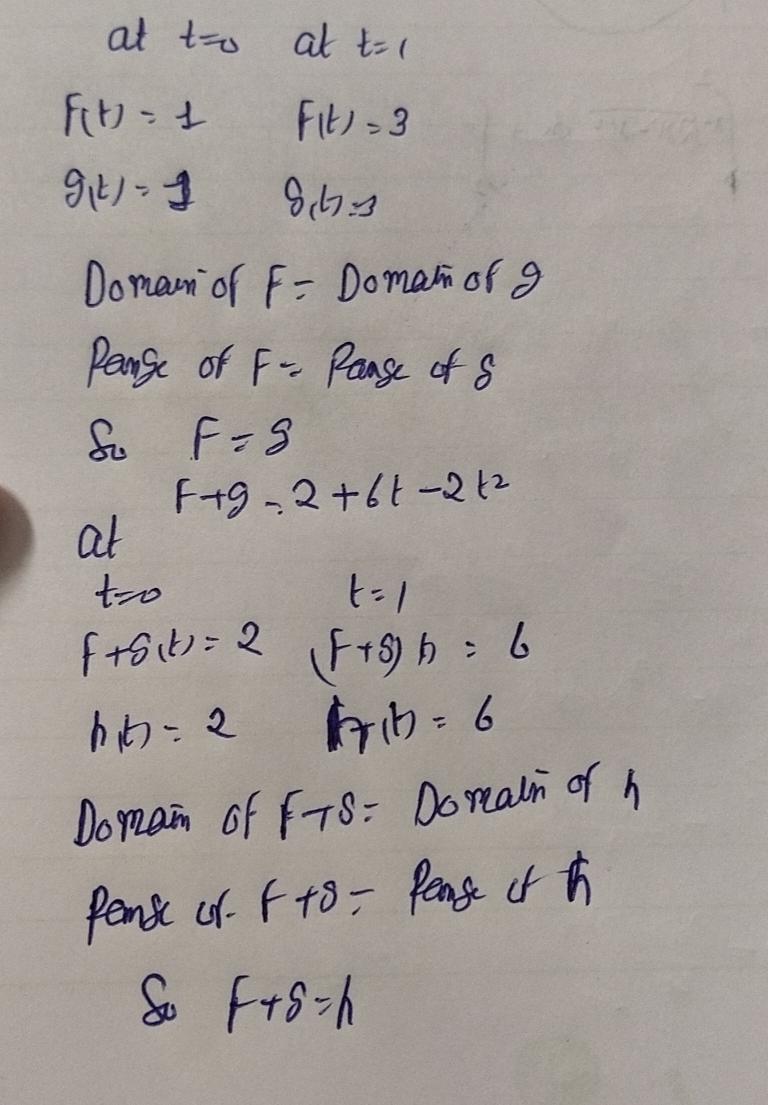 at t=0 at t=1
F(t) = 1 F(t) = 3
g(t) = 1 g(t) = 3
Domain of F = Domain of g
Range of F = Range of g
So F = g
F+g = 2 + 6t - 2t²
at
t=0 t=1
F+g(t) = 2 (F+g)t = 6
h(t) = 2 h(t) = 6
Domain of F+g = Domain of h
Range of F+g = Range of h
So F+g=h